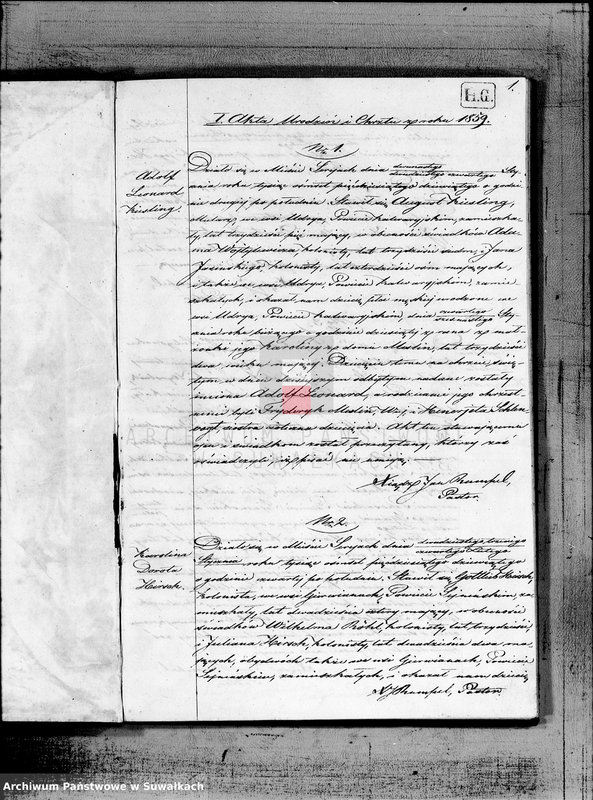 1.
H.G.
I. Akta Urodzin i Chrztu z roku 1859.
No 1.
Adolf
Leonard
Kiesling.
Działo się w Mieście Serejach dnia dwunastego
dwudziestego czwartego Sty-
cznia roku tysiąc ośmset pięćdziesiątego dziewiątego o godzi-
nie drugiej po południu. Stawił się August Kiesling,
we wsi Udrya, Powiecie Kalwaryjskim, zamieszka-
ły, lat trzydzieści pięć mający, w obecności świadków Ada-
ma Wojtylewicza, kolonisty, lat trzydzieści siedm, i Jana
Jasińskiego, kolonisty, lat czterdzieści ośm mających,
i także we wsi Udrya, Powiecie Kalwaryjskim, zamie-
szkałych, i okazał nam dziecię płci męzkiej urodzone we
wsi Udrya, Powiecie Kalwaryjskim, dnia
Sty-
cznia roku bieżącego o godzinie dziesiątej z rana z mał-
żonki jego Karoliny z domu lat trzydzieści
dwa, wieku mającej. Dziecięciu temu na chrzcie świę-
tym w dniu dzisiejszym odbytym nadane zostały
imiona Adolf Leonard, a rodzicami jego chrzest-
nymi byli Frydryk i Henryjeta
siostra dziecięcia. Akt ten stawającemu
i świadkom został przeczytany, którzy zaś
oświadczyli, iż pisać nie umieją.
Xiądz Jan Rumpel,
Pastor.
No 2.
Karolina
Dorota
Hirsch.
Działo się w Mieście Serejach dnia dwudziestego
Stycznia roku tysiąc ośmset pięćdziesiątego dziewiątego
o godzinie czwartej po południu. Stawił się Gottlieb Hirsch,
kolonista, we wsi Giwianach, Powiecie Sejneńskim, za-
mieszkały, lat dwadzieścia cztery mający, w obecności
świadków Wilhelma Röhl, kolonisty, lat trzydzieści,
i Juliana Hirsch, kolonisty, lat dwadzieścia dwa ma-
jących, obydwóch także we wsi Giwianach, Powiecie
Sejneńskim, zamieszkałych, i okazał nam dziecię
X. J. Rumpel, Pastor.
Archiwum Państwowe w Suwałkach